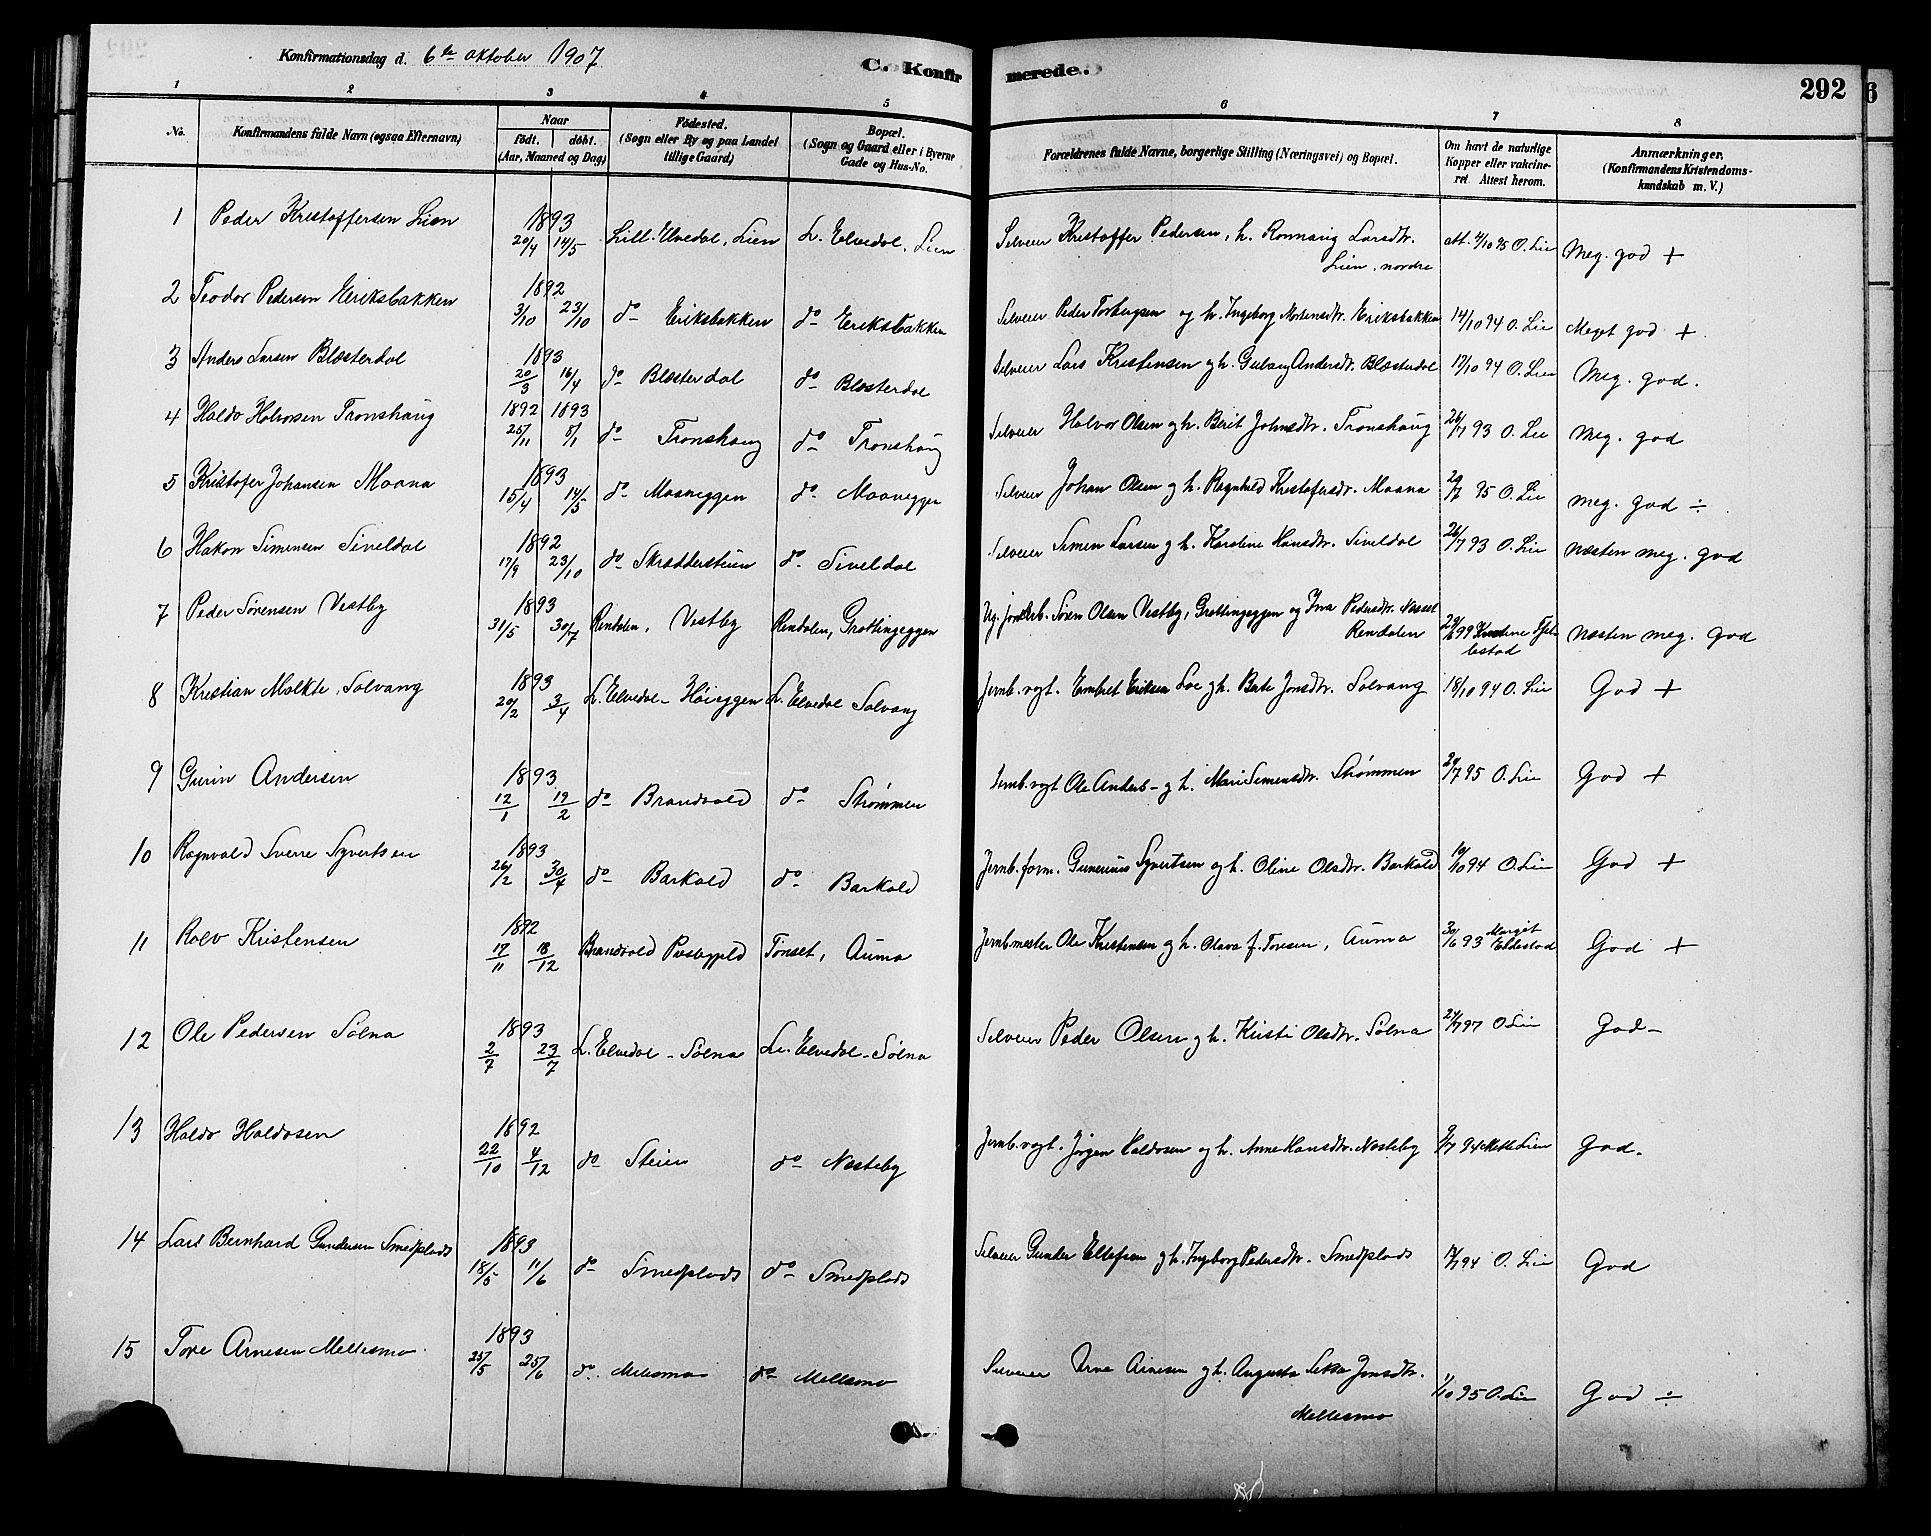 Konfirmationsdag d. 6te oktober 1907
C. Konfirmerede.
292
1 2 3 4 5 6 7 8
No. Konfirmandens fulde Navn (ogsaa Efternavn) Naar født. døbt. (Aar, Maaned og Dag) Fødested. (Sogn eller By og paa Landet tillige Gaard) Bopæl. (Sogn og Gaard eller i Byerne Gade og Hus-No. Forældrenes fulde Navne, borgerlige Stilling (Næringsvei) og Bopæl. Om havt de naturlige Kopper eller vakcineret. Attest herom. Anmærkninger. (Konfirmandens Kristendomskundskab m. V.)
1 Peder Kristoffersen Lien 1893 20/4 14/5 Lill-Elvedal, Lien L. Elvedal, Lien Selveier Kristoffer Pedersen, h. Ronnaug Larsdtr. Lien, nordre att. 4/10 95 O. Lie Meg. god +
2 Teodor Pedersen Eriksbakken 1892 3/10 23/10 do Eriksbakken do Eriksbakken Selveier Peder Torbergsen og h. Ingeborg Mortensdtr. Eriksbakken 14/10 94 O. Lie Meget god +
3 Anders Larsen Blæsterdal 1893 20/3 16/4 do Blæsterdal do Blæsterdal Selveier Lars Kristensen og h. Gulaug Andersdtr. Blæsterdal 17/10 94 O. Lien Meg. god.
4 Haldo Halvorsen Tronshaug 1892 25/11 1893 8/1 do Tronshaug do Tronshaug Selveier Halvor Olsen og h. Berit Johnsdtr. Tronshaug 26/7 93 O. Lie Meg. god
5 Kristofer Johansen Moana 1893 15/4 14/5 do Moaneggen do Moaneggen Selveier Johan Olsen og h. Ragnhild Kristofersdr. Moana 29/7 95 O. Lie Meg. god ÷
6 Hakon Simensen Siveldal 1892 17/9 23/10 do Skræddersteien do Siveldal Selveier Simen Larsen og h. Karoline Hansdtr. Siveldal 26/7 93 O. Lie næsten meg. god
7 Peder Sørensen Vestby 1893 31/5 30/7 Rendalen, Vestby Rendalen, Grøttingeggen Ug. jordarb. Søren Olsen Vestby, Grøttingeggen og Ina Pedersdtr. Rendalen næsten meg. god
8 Kristian Molkte Solvang 1893 20/2 3/4 L. Elvedal - Høieggen L. Elvedal Solvang Jernb.vogt. Embret Eriksen Loe og h. Berte Jonsdtr. Solvang 18/10 94 O. Lie God +
9 Gurin Andersen 1893 12/1 19/2 do Brandvold do Strømmen Jernb.vogt Ole Anders- og h. Mari Simensdtr. Strømmen 29/7 95 O. Lie God +
10 Ragnvald Sverre Syvertsen 1893 26/2 30/4 do Barkald do Barkald Jernb.form. Gunerius Syvertsen og h. Oline Olsdtr. Barkald 19/10 94 O. Lie God +
11 Rolv Kristensen 1892 17/11 18/12 Brandvold Præstegjeld Tønset, Auma Jernb.mester Ole Kristensen og h. Olava f. Toresen, Auma 30/6 93 Margit Eldestad God +
12 Ole Pedersen Sølna 1893 2/7 23/7 L. Elvedal - Sølna L. Elvedal - Sølna Selveier Peder Olsen og h. Kirsti Olsdtr. Sølna O Lie God -
13 Haldo Haldosen 1892 22/10 4/12 do Steien do Nesteby Jernb.vogt. Jørgen Haldosen og h. Anne Hansdtr. Nesteby 9/7 94 Mette Lien God.
14 Lars Bernhard Gundersen Smedplads 1893 18/5 11/6 do Smedplads do Smedplads Selveier Gunder Ellefsen og h. Ingeborg Pedersdtr. Smedplads O. Lie God
15 Tore Arnesen Mellesmo 1893 25/5 25/6 do Mellesmo do Mellesmo Selveier Arne Arnesen og h. Augusta Jonsdtr. Mellesmo 1/10 95 O. Lie God ÷